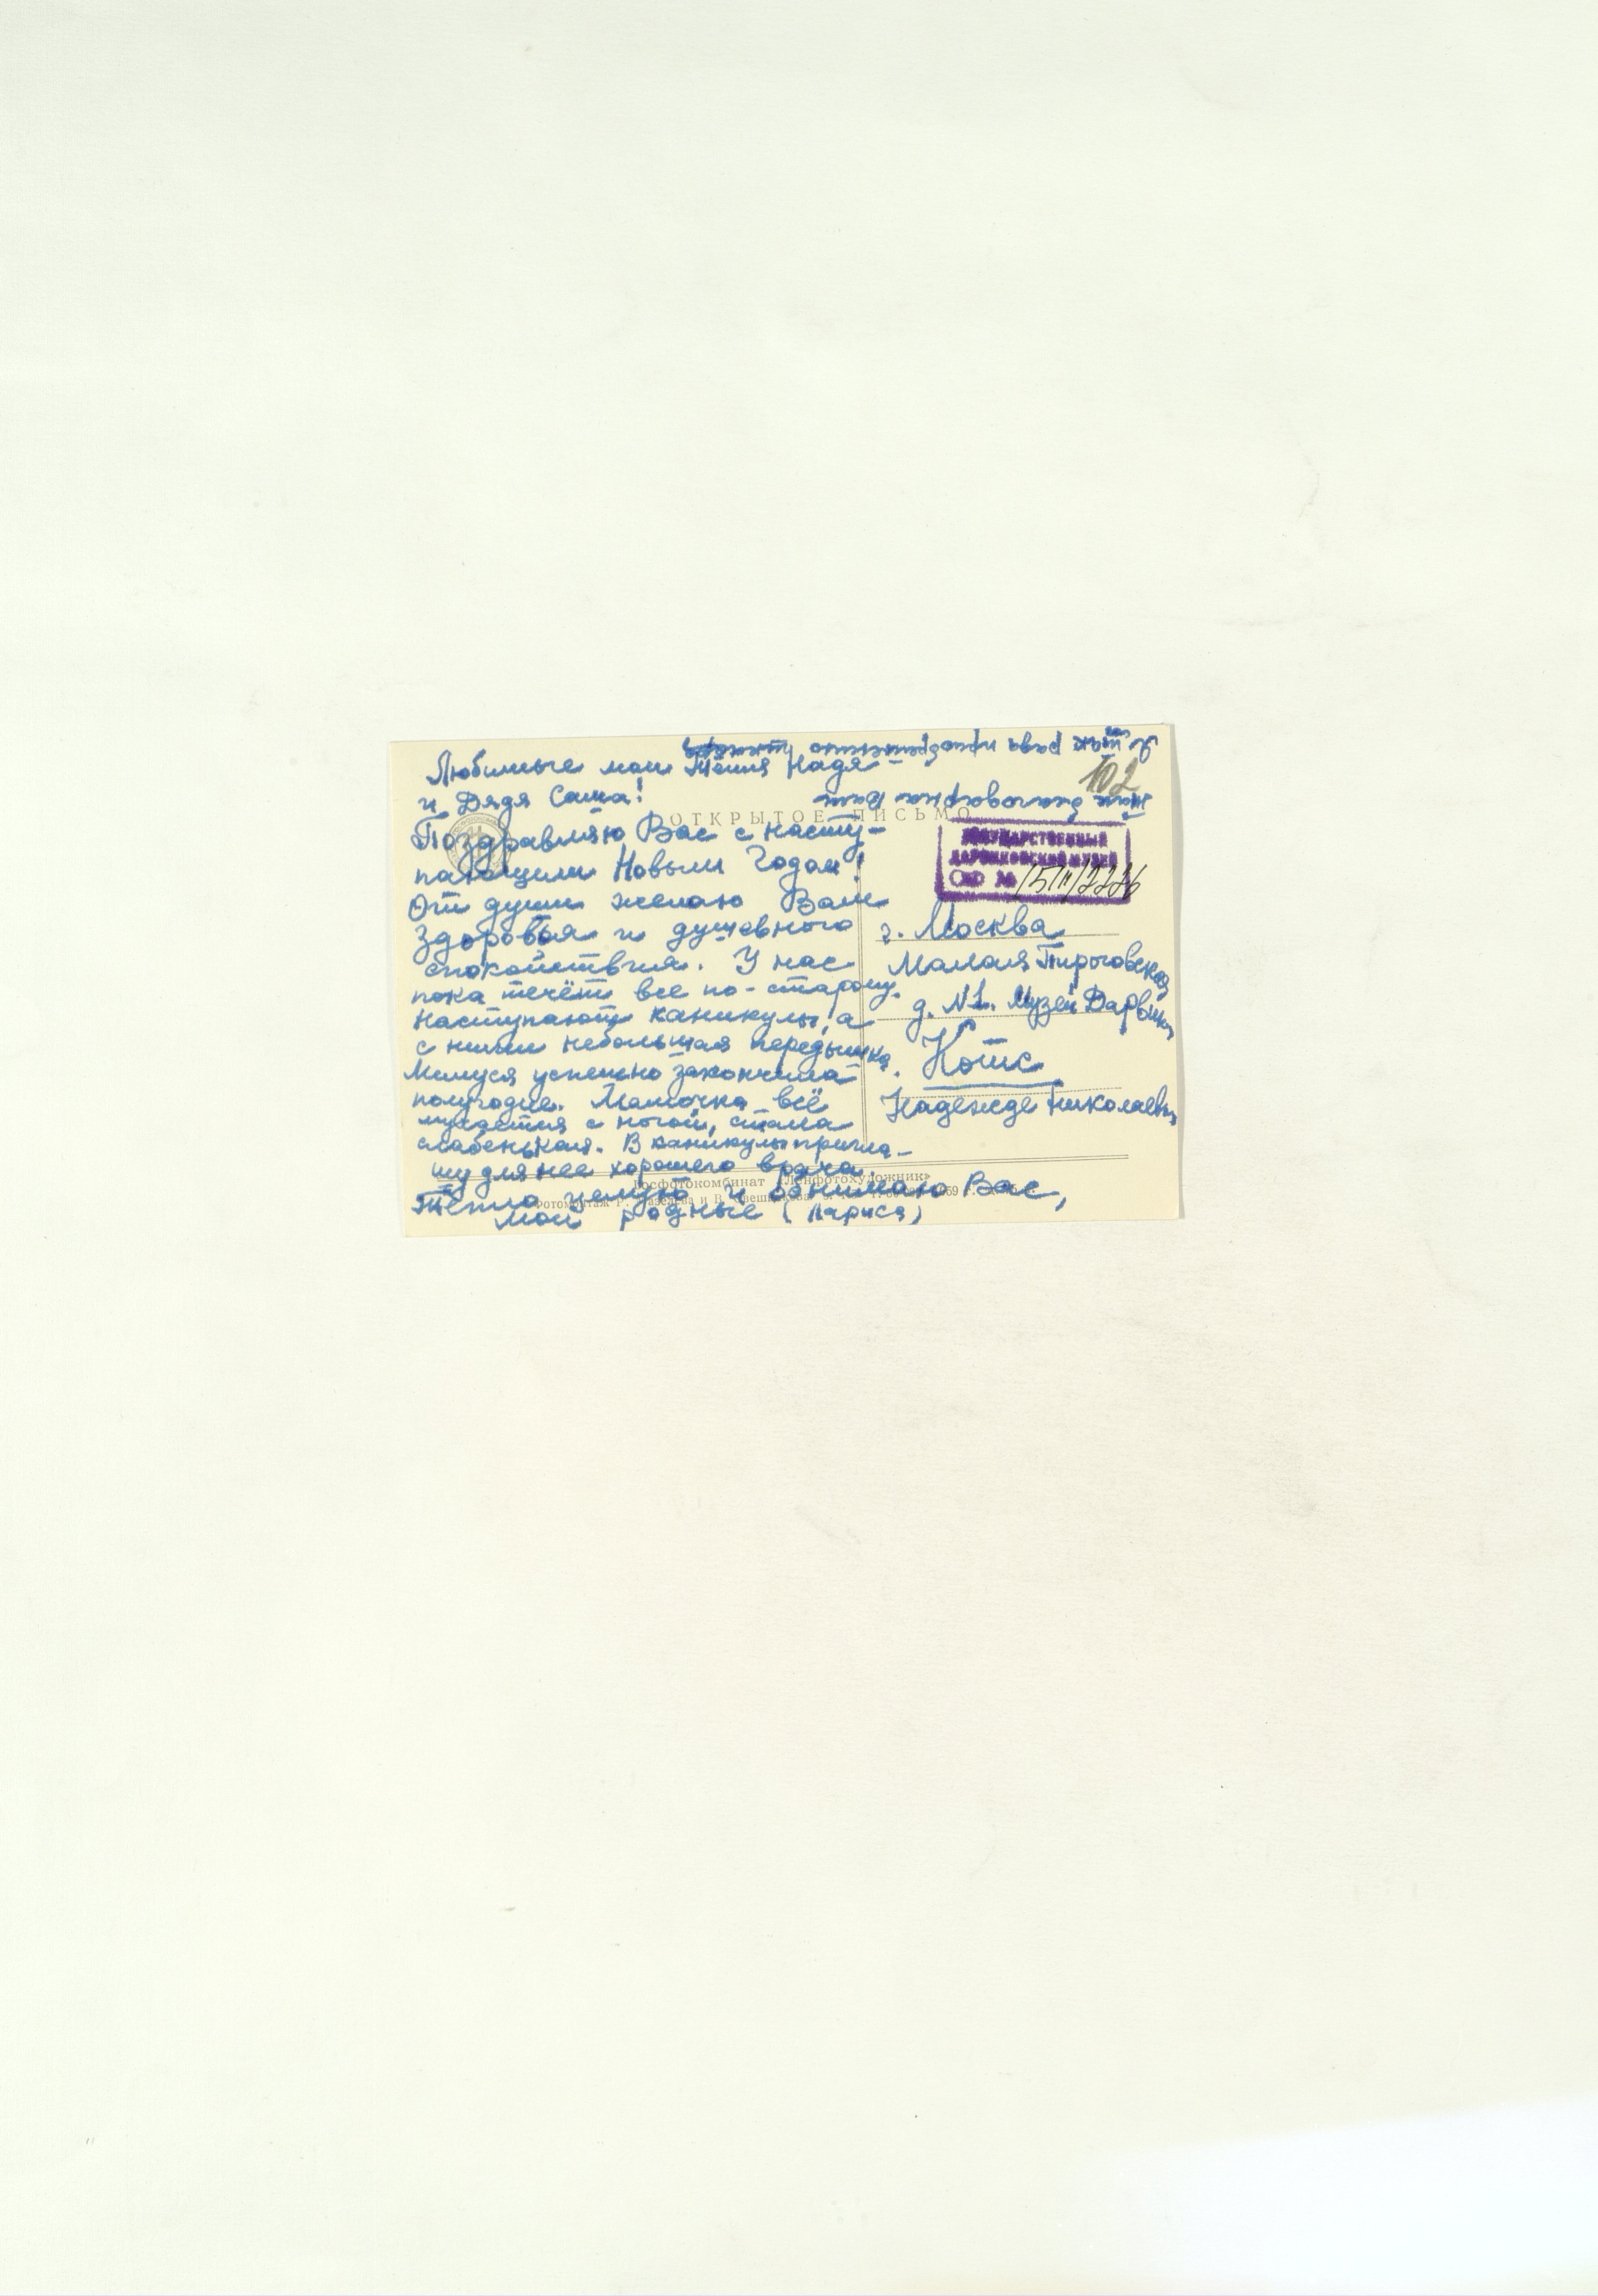 Любимые мои Тётя Надя
и Дядя Саша!
Поздравляю Вас с насту-
пающим Новым Годом!
От души желаю Вам
здоровья и душевного
спокойствия. У нас
пока течёт все по-старому.
Наступают каникулы, а
с ними небольшая передышка.
Милуся успешно закончила
полугодие. Мамочка всё
мучается с ногой, стала
слабенькая. В каникулы пригла-
шу для нее хорошего врача.
Тепло целую и обнимаю Вас,
мои родные (Лариса)
так рада
так благодарна Вам
102
ОТКРЫТОЕ ПИСЬМО
ГОСУДАРСТВЕННЫЙ
ДАРВИНОВСКИЙ МУЗЕЙ
№
г. Москва
Малая Пироговская
д. №1. Музей Дарвина
Котс
Надежде Николаевне
Росфотокомбинат «Ленфотохудожник»
Фотомонтаж